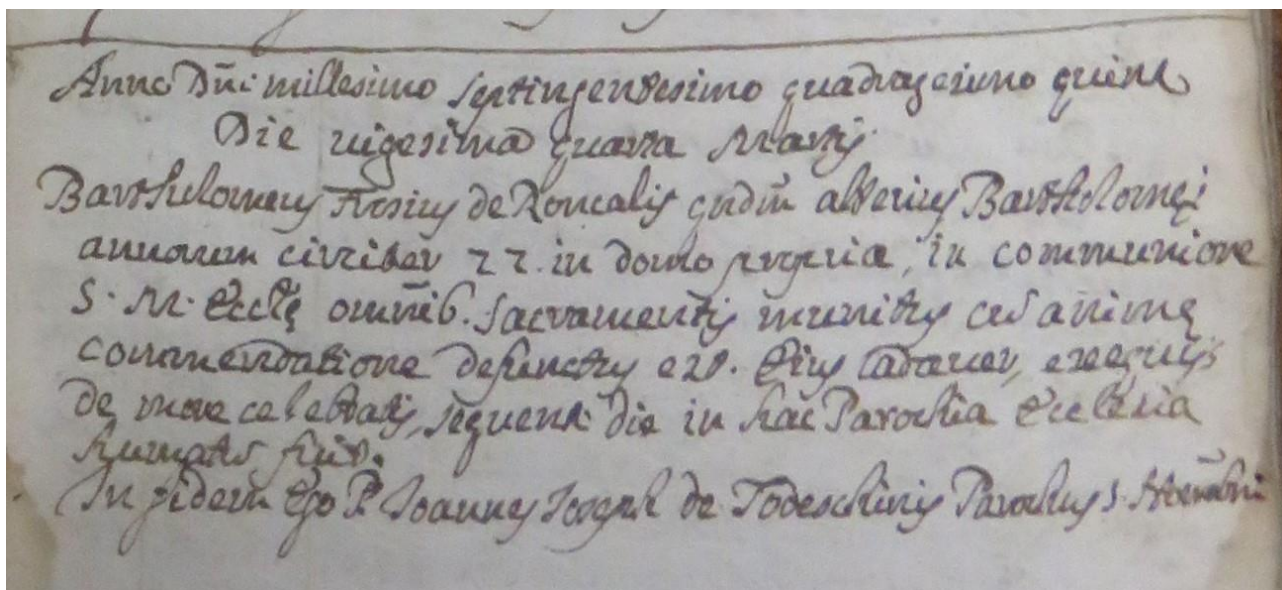 Anno Dñi millesimo septingentesimo quadragesimo quint
Die vigesima quarta Martij
Bartholomeus de Roncalis qndm alterius Bartholomęi
annorum circiter 22. in domo propria, in communione
S. M. Ecclę omnib. sacramentis munitus cũ animę
commendatione defunctus est. Eius Cadauer, exequijs
de more celebratis, sequenti die in hac Parochia Ecclesia
humatũ fuit.
In fidem Ego P. Joannes Joseph de Todeschinis Parochus S.